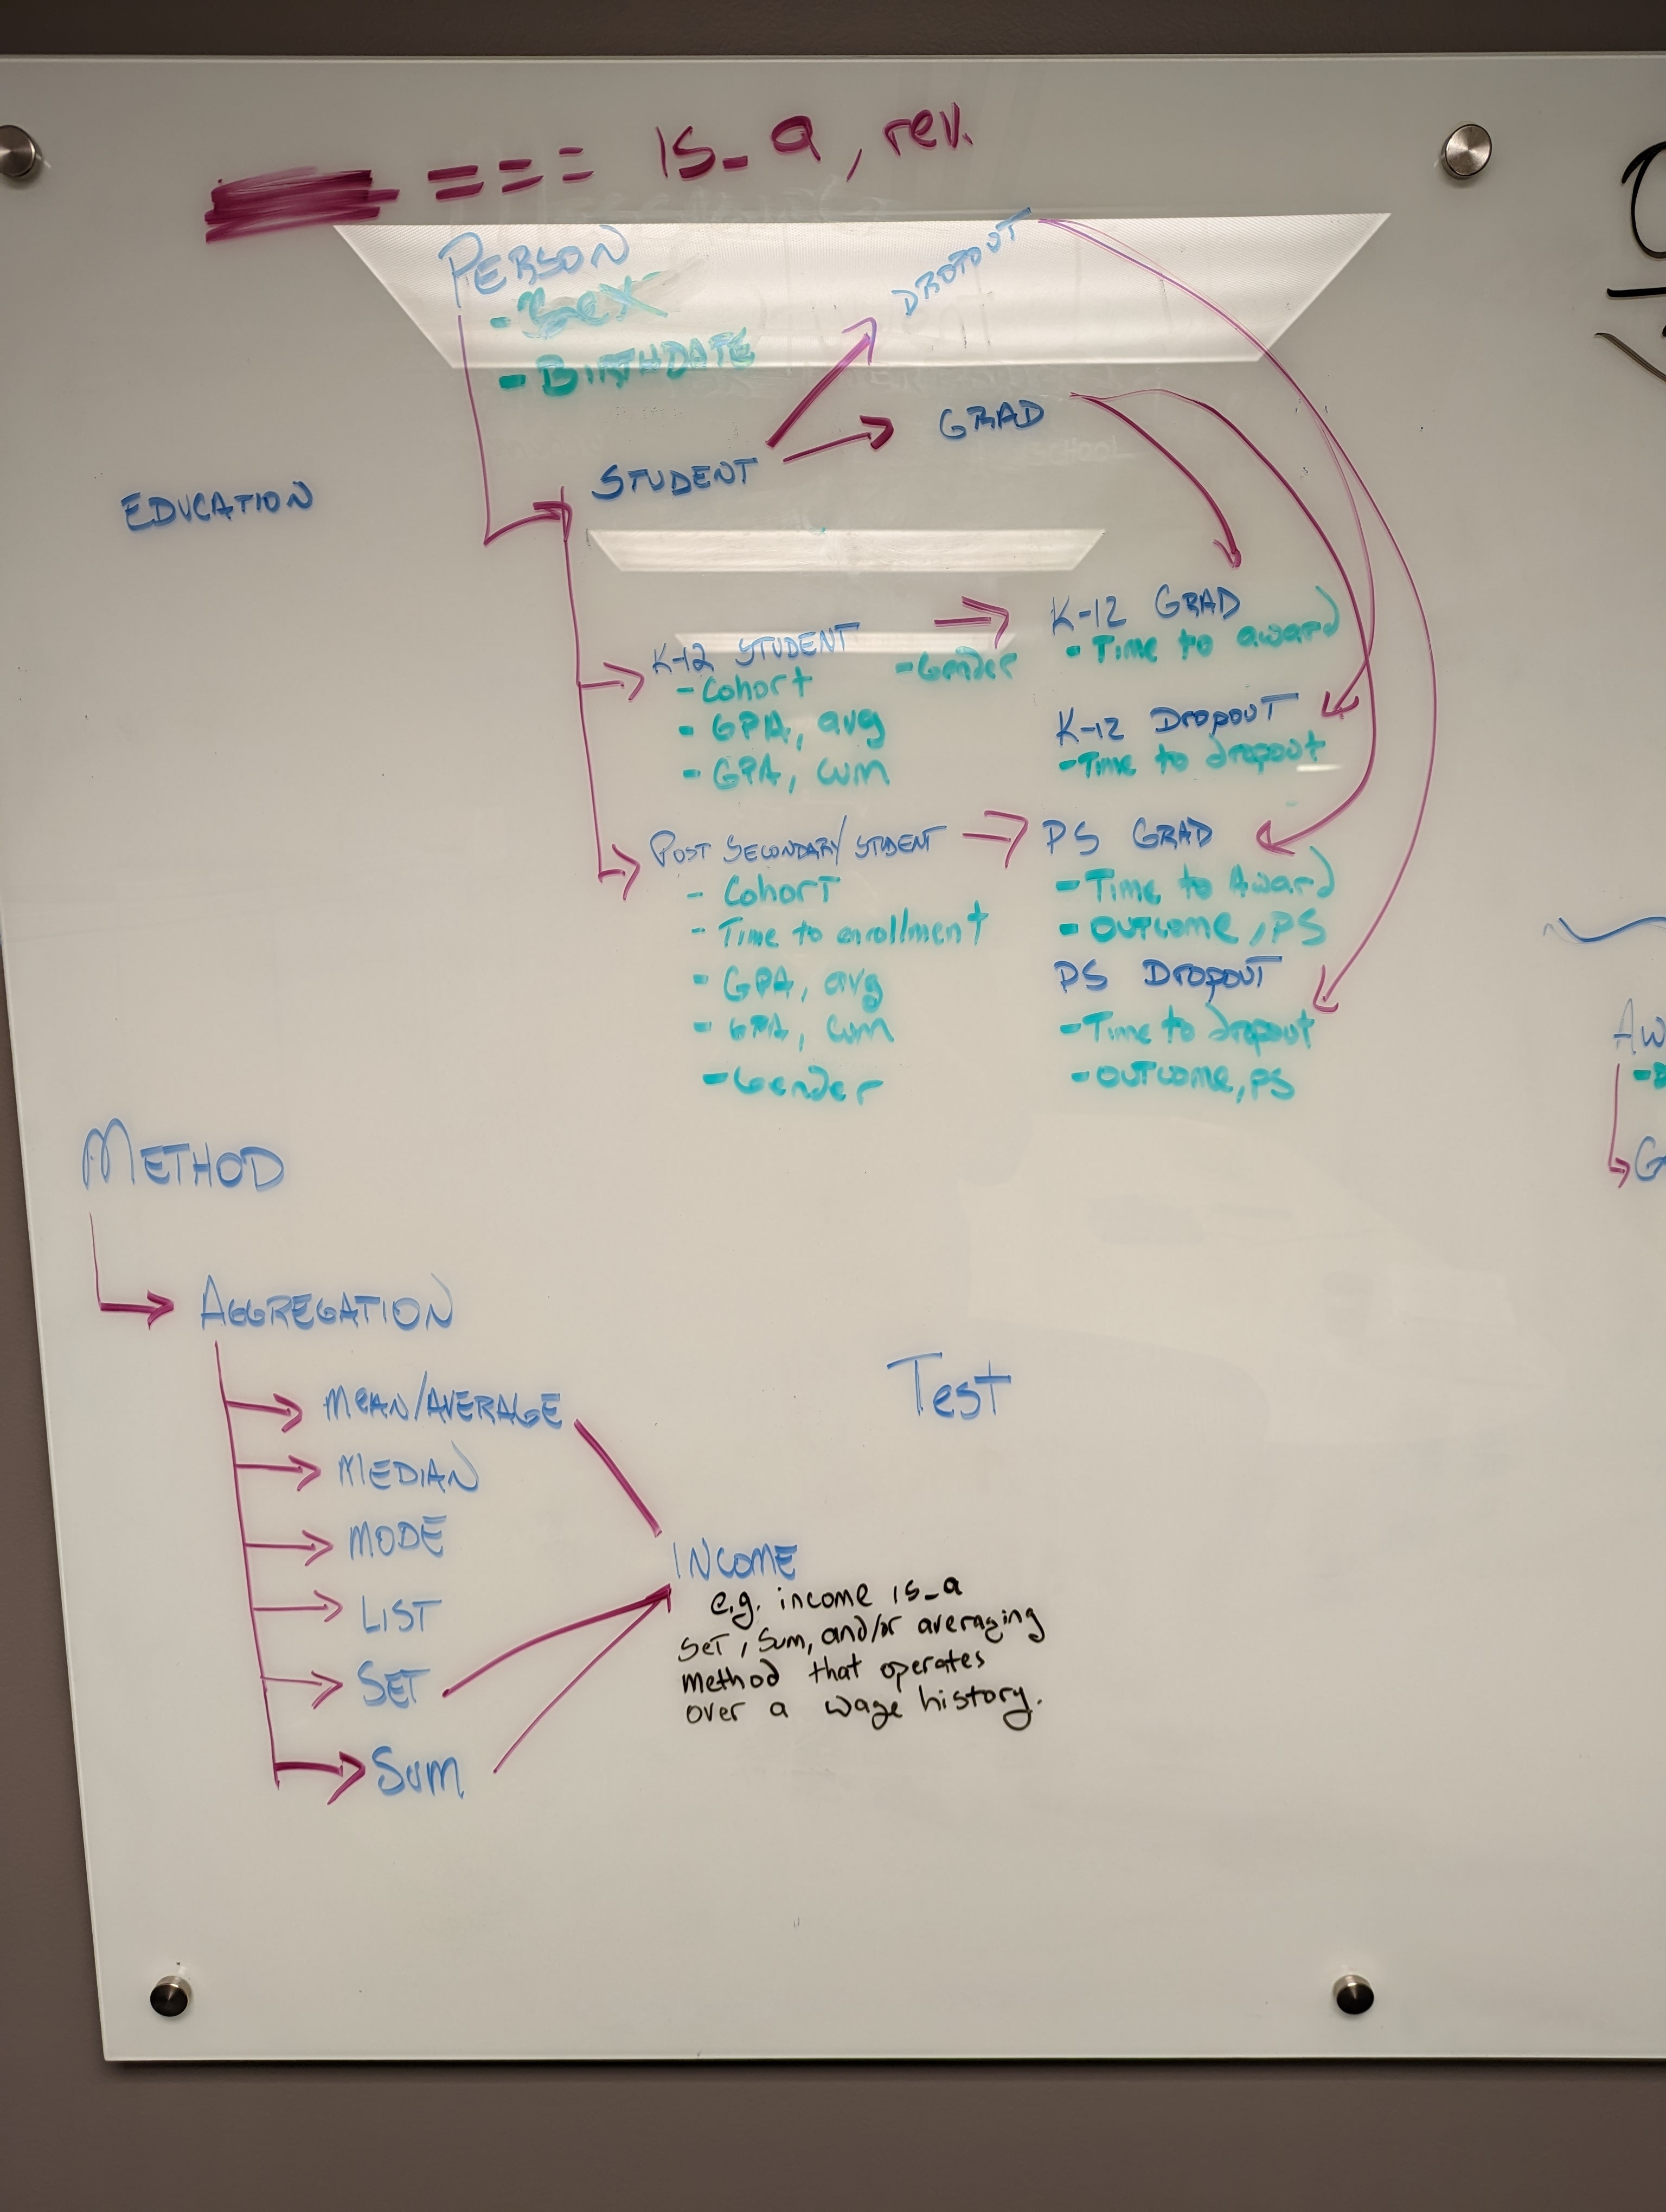 === is_a, rev.
PERSON
- Sex
- BIRTHDATE
DROPOUT
GRAD
STUDENT
EDUCATION
K-12 STUDENT
- Cohort
- GPA, avg
- GPA, cum
- Gender
K-12 GRAD
- Time to award
K-12 Dropout
- Time to dropout
POST SECONDARY STUDENT
- Cohort
- Time to enrollment
- GPA, avg
- GPA, cum
- Gender
PS GRAD
- Time to Award
- OUTCOME, PS
PS Dropout
- Time to dropout
- OUTCOME, PS
METHOD
AGGREGATION
MEAN/AVERAGE
MEDIAN
MODE
LIST
SET
Sum
Test
INCOME
e.g. income is_a
SET, Sum, and/or averaging
method that operates
over a wage history.